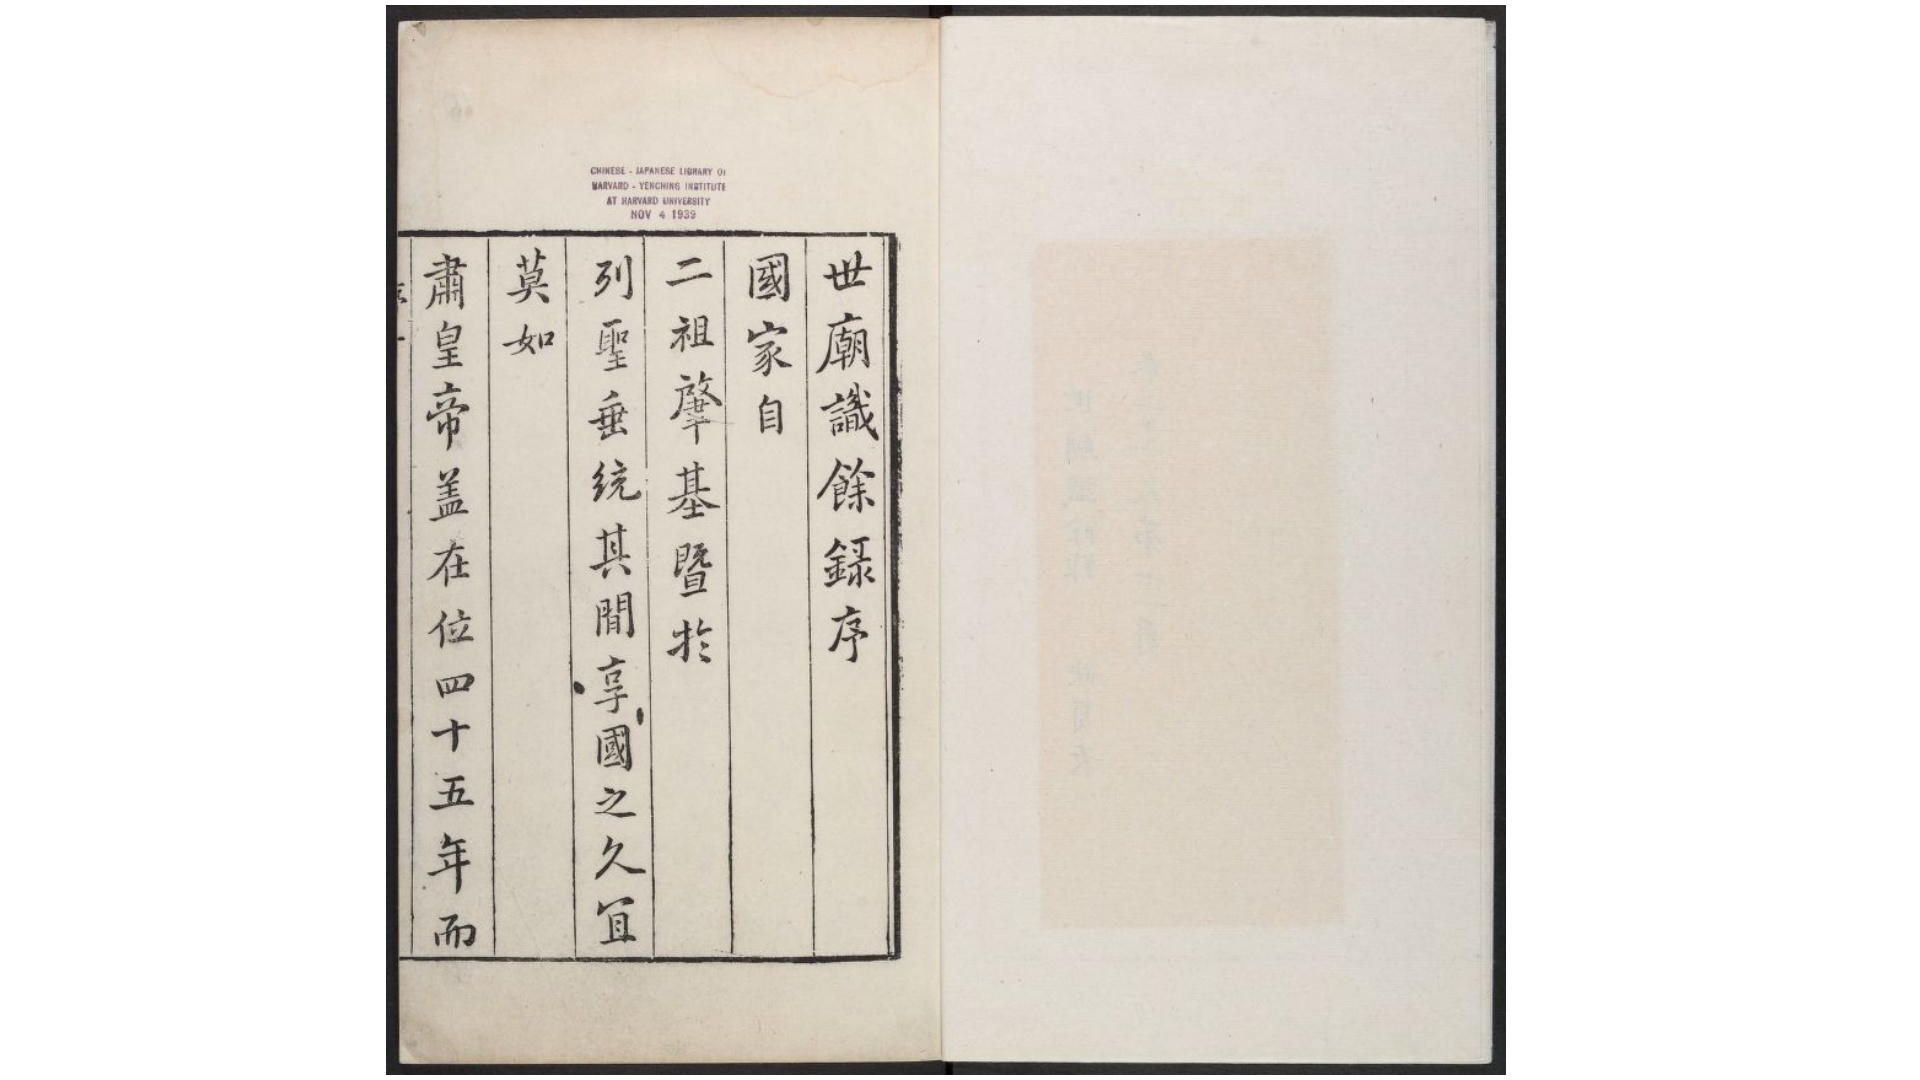 世廟識餘録序
國家自
二祖肇基暨扵
列聖垂统其間享國之久冝
莫如
肅皇帝盖在位四十五年而
CHINESE - JAPANESE LIBRARY OF
HARVARD - YENCHING INSTITUTE
AT HARVARD UNIVERSITY
NOV 4 1939